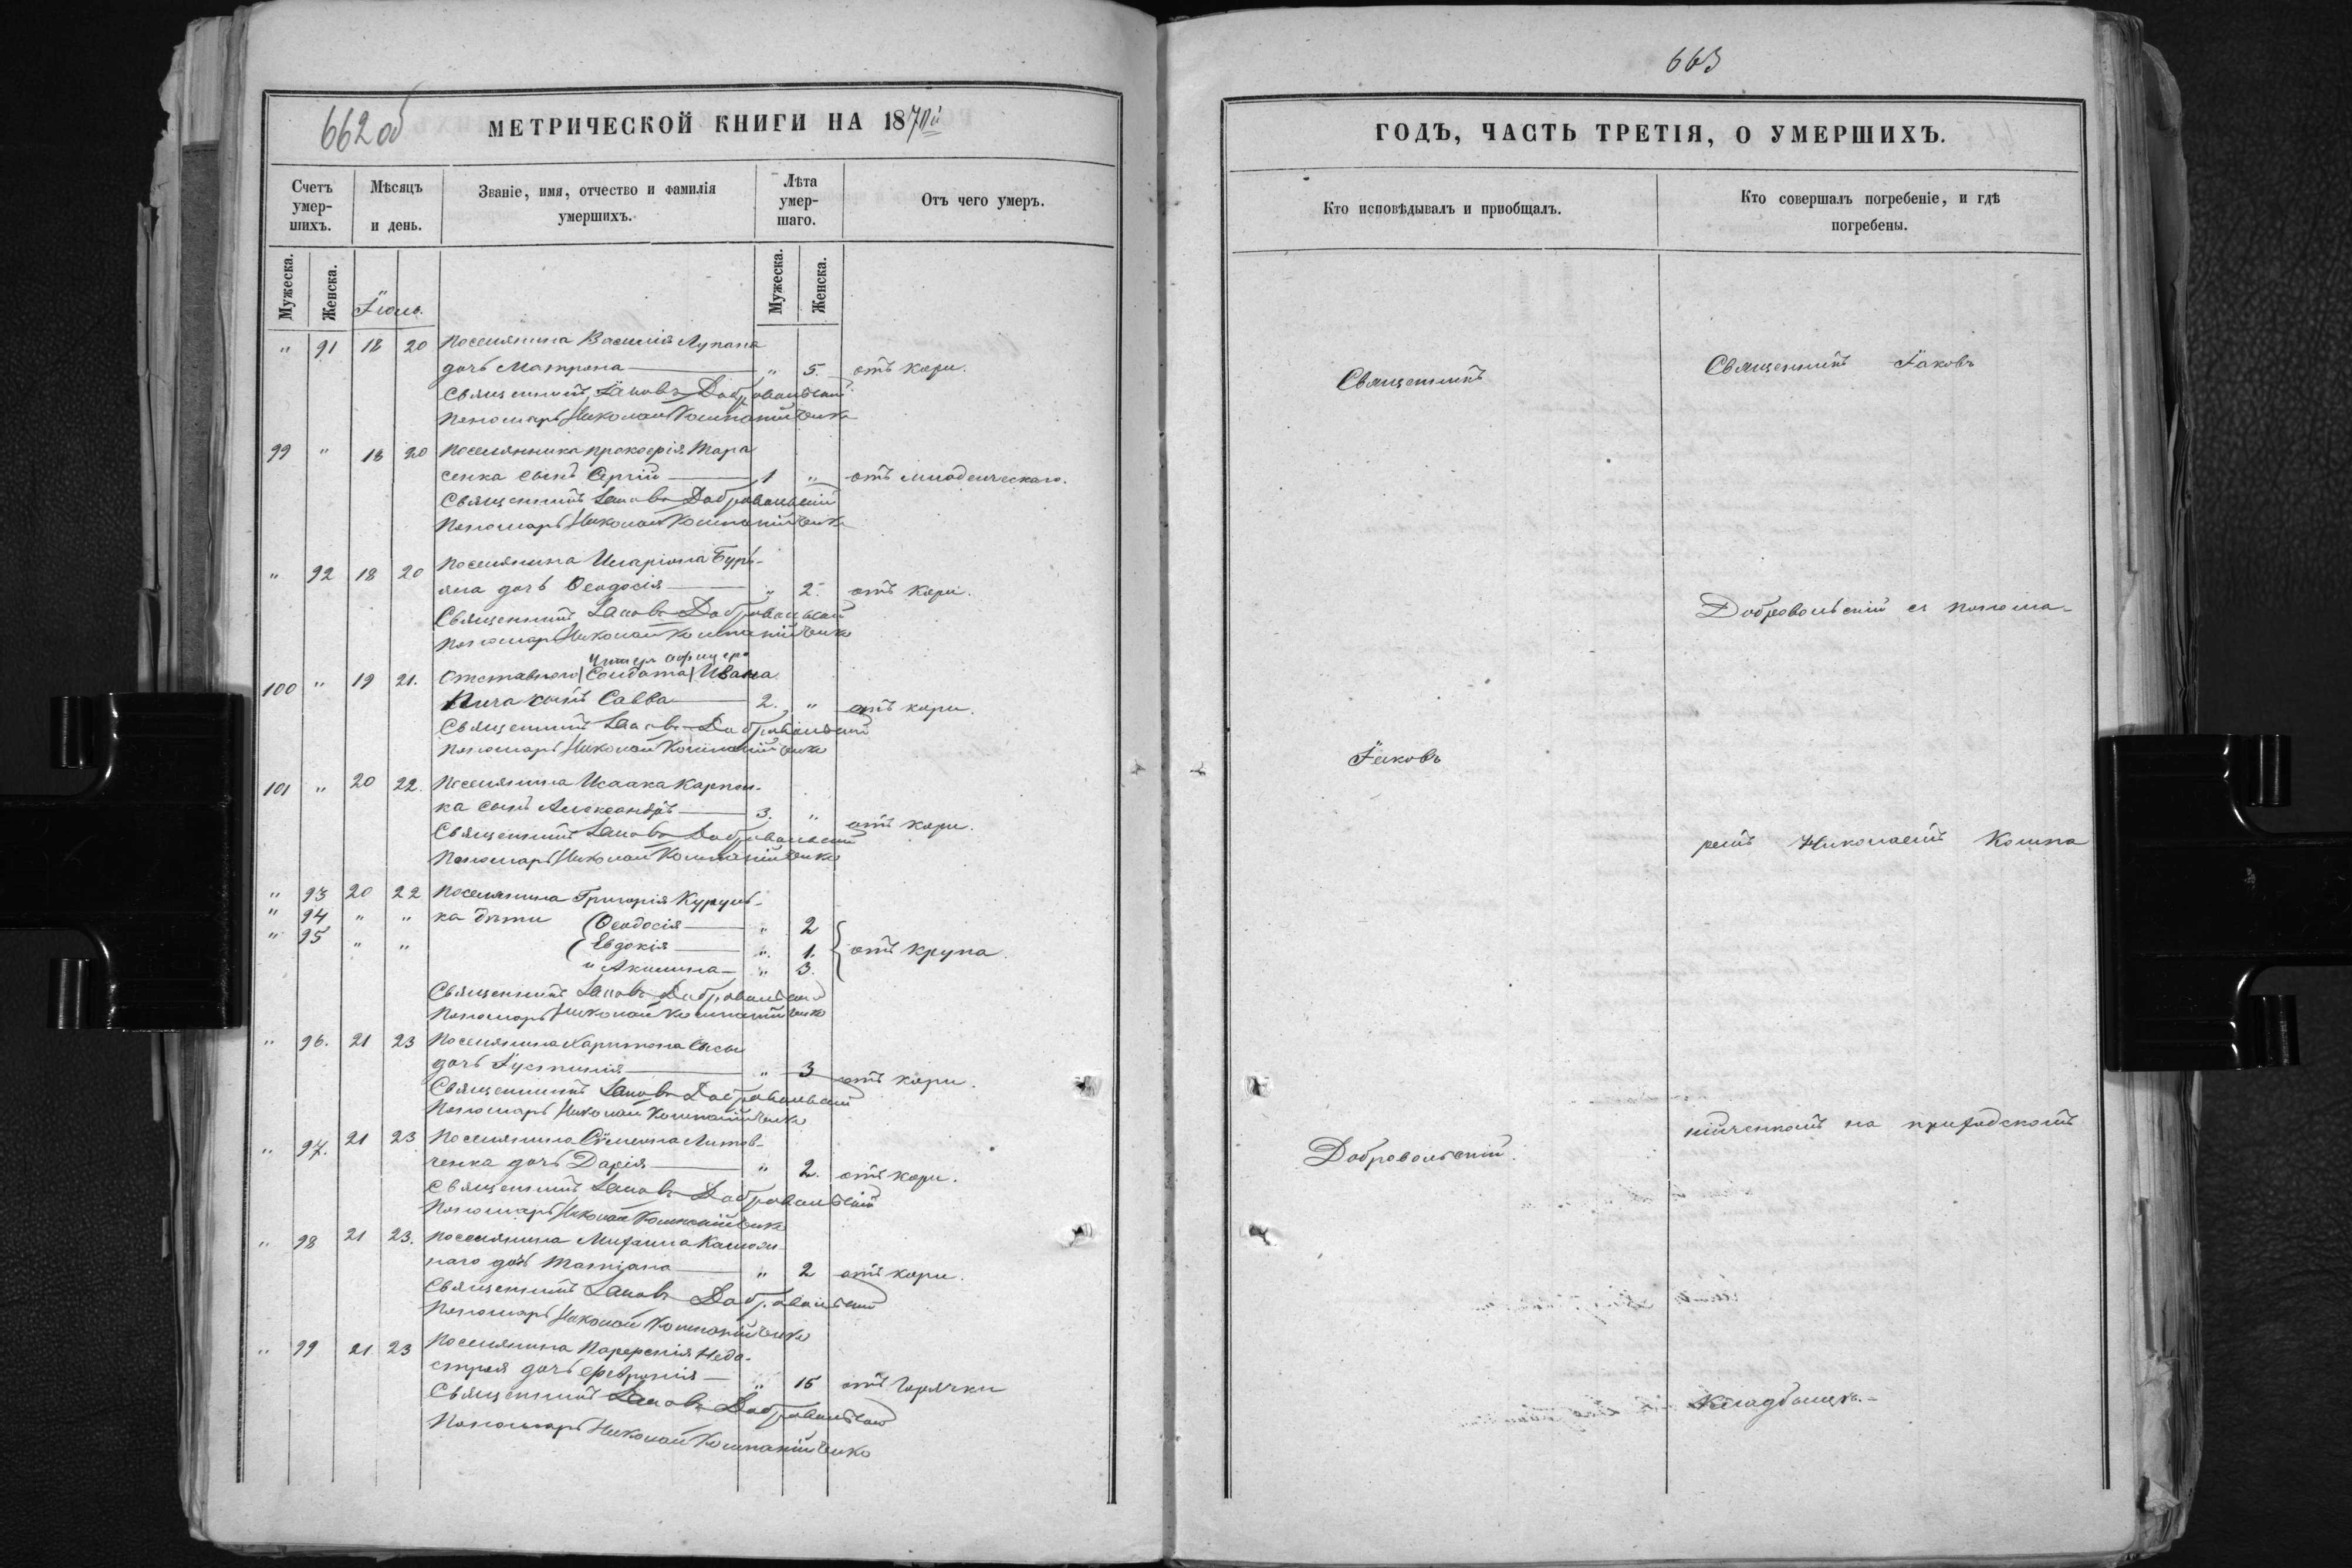 662 об
МЕТРИЧЕСКОЙ КНИГИ НА 1870й
Счетъ умер-шихъ.
Мѣсяцъ и день.
Званіе, имя, отчество и фамилія умершихъ.
Лѣта умер-шаго.
Отъ чего умеръ.
Мужеска. Женска. Мужеска. Женска.
Іюль.
" 91 18 20 Поселянина Василія Лупана
дочь Матрона " 5. отъ кори.
Священникъ Іаковъ Добровольскій
Пономарь Николай Компанійченко
99 " 18 20 Поселянина Прокофія Тара
сенка сынъ Сергій 1 " отъ младенческаго.
Священникъ Іаковъ Добровольскій
Пономарь Николай Компанійченко
" 92 18 20 Поселянина Иларіона Бурь-
яна дочь Ѳеодосія " 2. отъ кори.
Священникъ Іаковъ Добровольскій
Пономарь Николай Компанійченко
унтеръ офицера
100 " 19 21. Отставного Солдата Ивана
сынъ Савва 2. " отъ кори.
Священникъ Іаковъ Добровольскій
Пономарь Николай Компанійченко
101 " 20 22. Поселянина Исаака Карпен-
ка сынъ Александръ 3. " отъ кори.
Священникъ Іаковъ Добровольскій
Пономарь Николай Компанійченко
" 93 20 22 Поселянина Григорія
" 94 " " ка дѣти Ѳеодосія " 2
" 95 " " Евдокія " 1. отъ крупа.
и Акилина " 3.
Священникъ Іаковъ Добровольскій
Пономарь Николай Компанійченко
" 96. 21 23 Поселянина Харитона Сисы
дочь Іустинія " 3 отъ кори.
Священникъ Іаковъ Добровольскій
Пономарь Николай Компанійченко
" 97. 21 23 Поселянина Симеона Литов-
ченка дочь Дарія " 2. отъ кори.
Священникъ Іаковъ Добровольскій
Пономарь Николай Компанійченко
" 98 21 23. Поселянина Михаила
наго дочь Татіяна " 2 отъ кори.
Священникъ Іаковъ Добровольскій
Пономарь Николай Компанійченко
" 99 21 23 Поселянина Парфенія Недо-
строя дочь Февронія " 15 отъ горячки
Священникъ Іаковъ Добровольскій
Пономарь Николай Компанійченко
663
ГОДЪ, ЧАСТЬ ТРЕТІЯ, О УМЕРШИХЪ.
Кто исповѣдывалъ и приобщалъ.
Кто совершалъ погребеніе, и гдѣ погребены.
Священникъ
Іаковъ
Добровольскій.
Священникъ Іаковъ
Добровольскій съ понома-
ремъ Николаемъ Компа
нійченкомъ на приходскомъ
кладбищѣ.